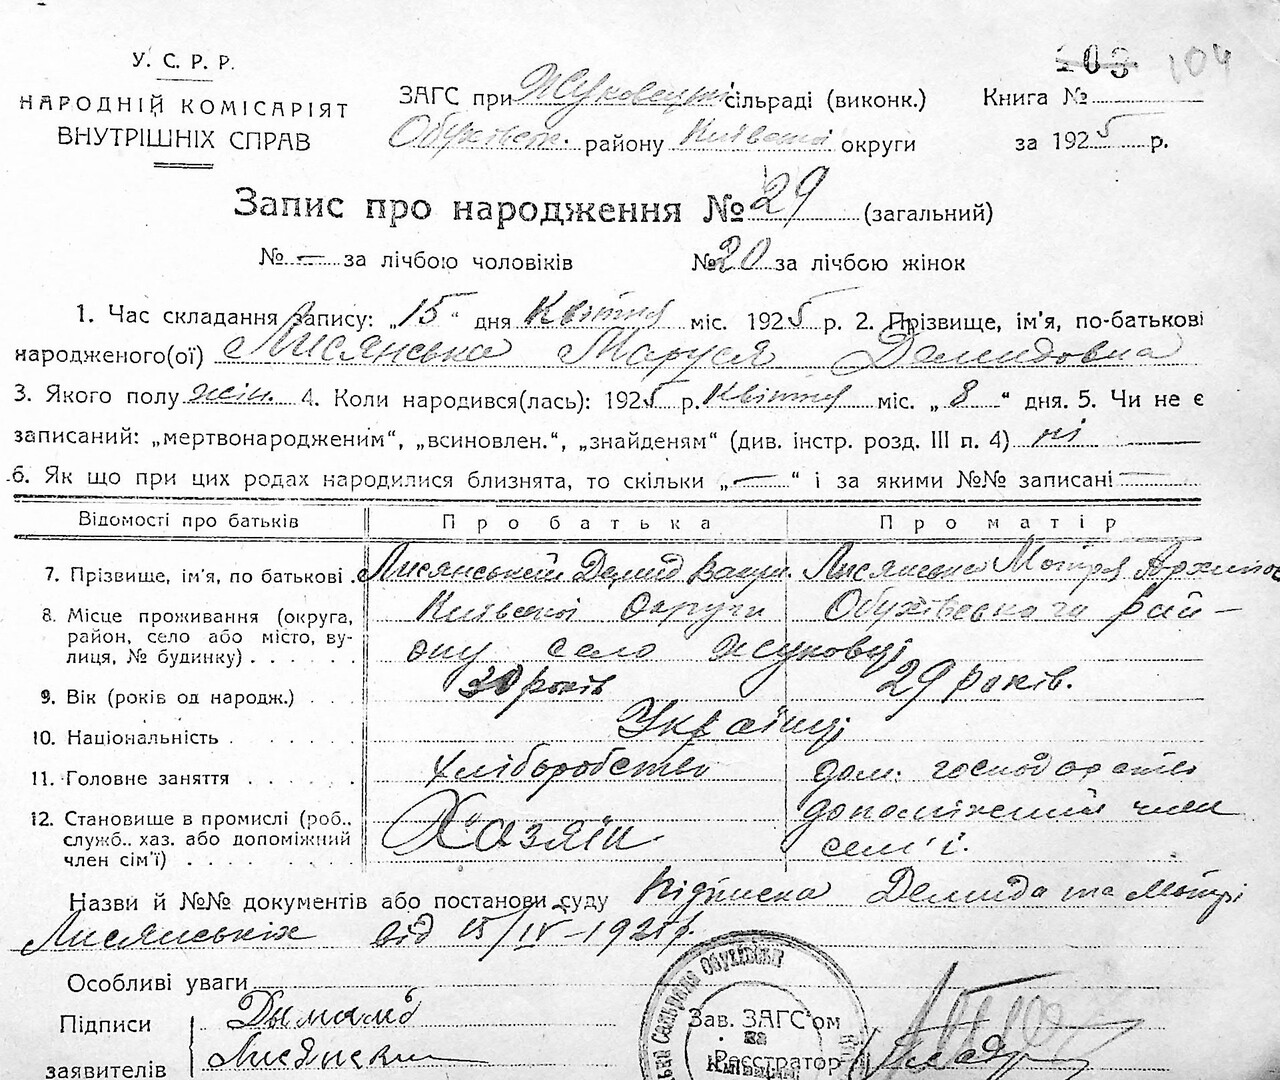 103 104
У. С. Р. Р.
НАРОДНІЙ КОМІСАРІЯТ
ВНУТРІШНІХ СПРАВ
ЗАГС при Жуковецькій сільраді (виконк.)
Обухівськ. району Київської округи
Книга №
за 1925 р.
Запис про народження № 29 (загальний)
№ — за лічбою чоловіків № 20 за лічбою жінок
1. Час складання запису: „15“ дня Квітня міс. 1925 р. 2. Прізвище, ім'я, по-батькові
народженого(ої) Лисянська Маруся Демидовна
3. Якого полу жін. 4. Коли народився(лась): 1925 р. Квітня міс. „8“ дня. 5. Чи не є
записаний: „мертвонародженим“, „всиновлен.“, „знайденям“ (див. інстр. розд. III п. 4) ні
6. Як що при цих родах народилися близнята, то скільки „—“ і за якими №№ записані —
Відомості про батьків Про батька Про матір
7. Прізвище, ім'я, по батькові Лисянський Демид Лисянська Мотря Архипов
8. Місце проживання (округа, район, село або місто, вулиця, № будинку) Київської Округи Обухівського рай-
ону село Жуковці
9. Вік (років од народж.) 30 років 29 років.
10. Національність Українці
11. Головне заняття Хліборобство дом. господарство
12. Становище в промислі (роб., служб.. хаз. або допоміжний член сім'ї) Хазяїн допоміжний член
сем'ї.
Назви й №№ документів або постанови суду Підписка Демида та Мотрі
Лисянських від 15/IV-1925 р.
Особливі уваги
Підписи
заявителів
Зав. ЗАГС'ом
Реєстратор